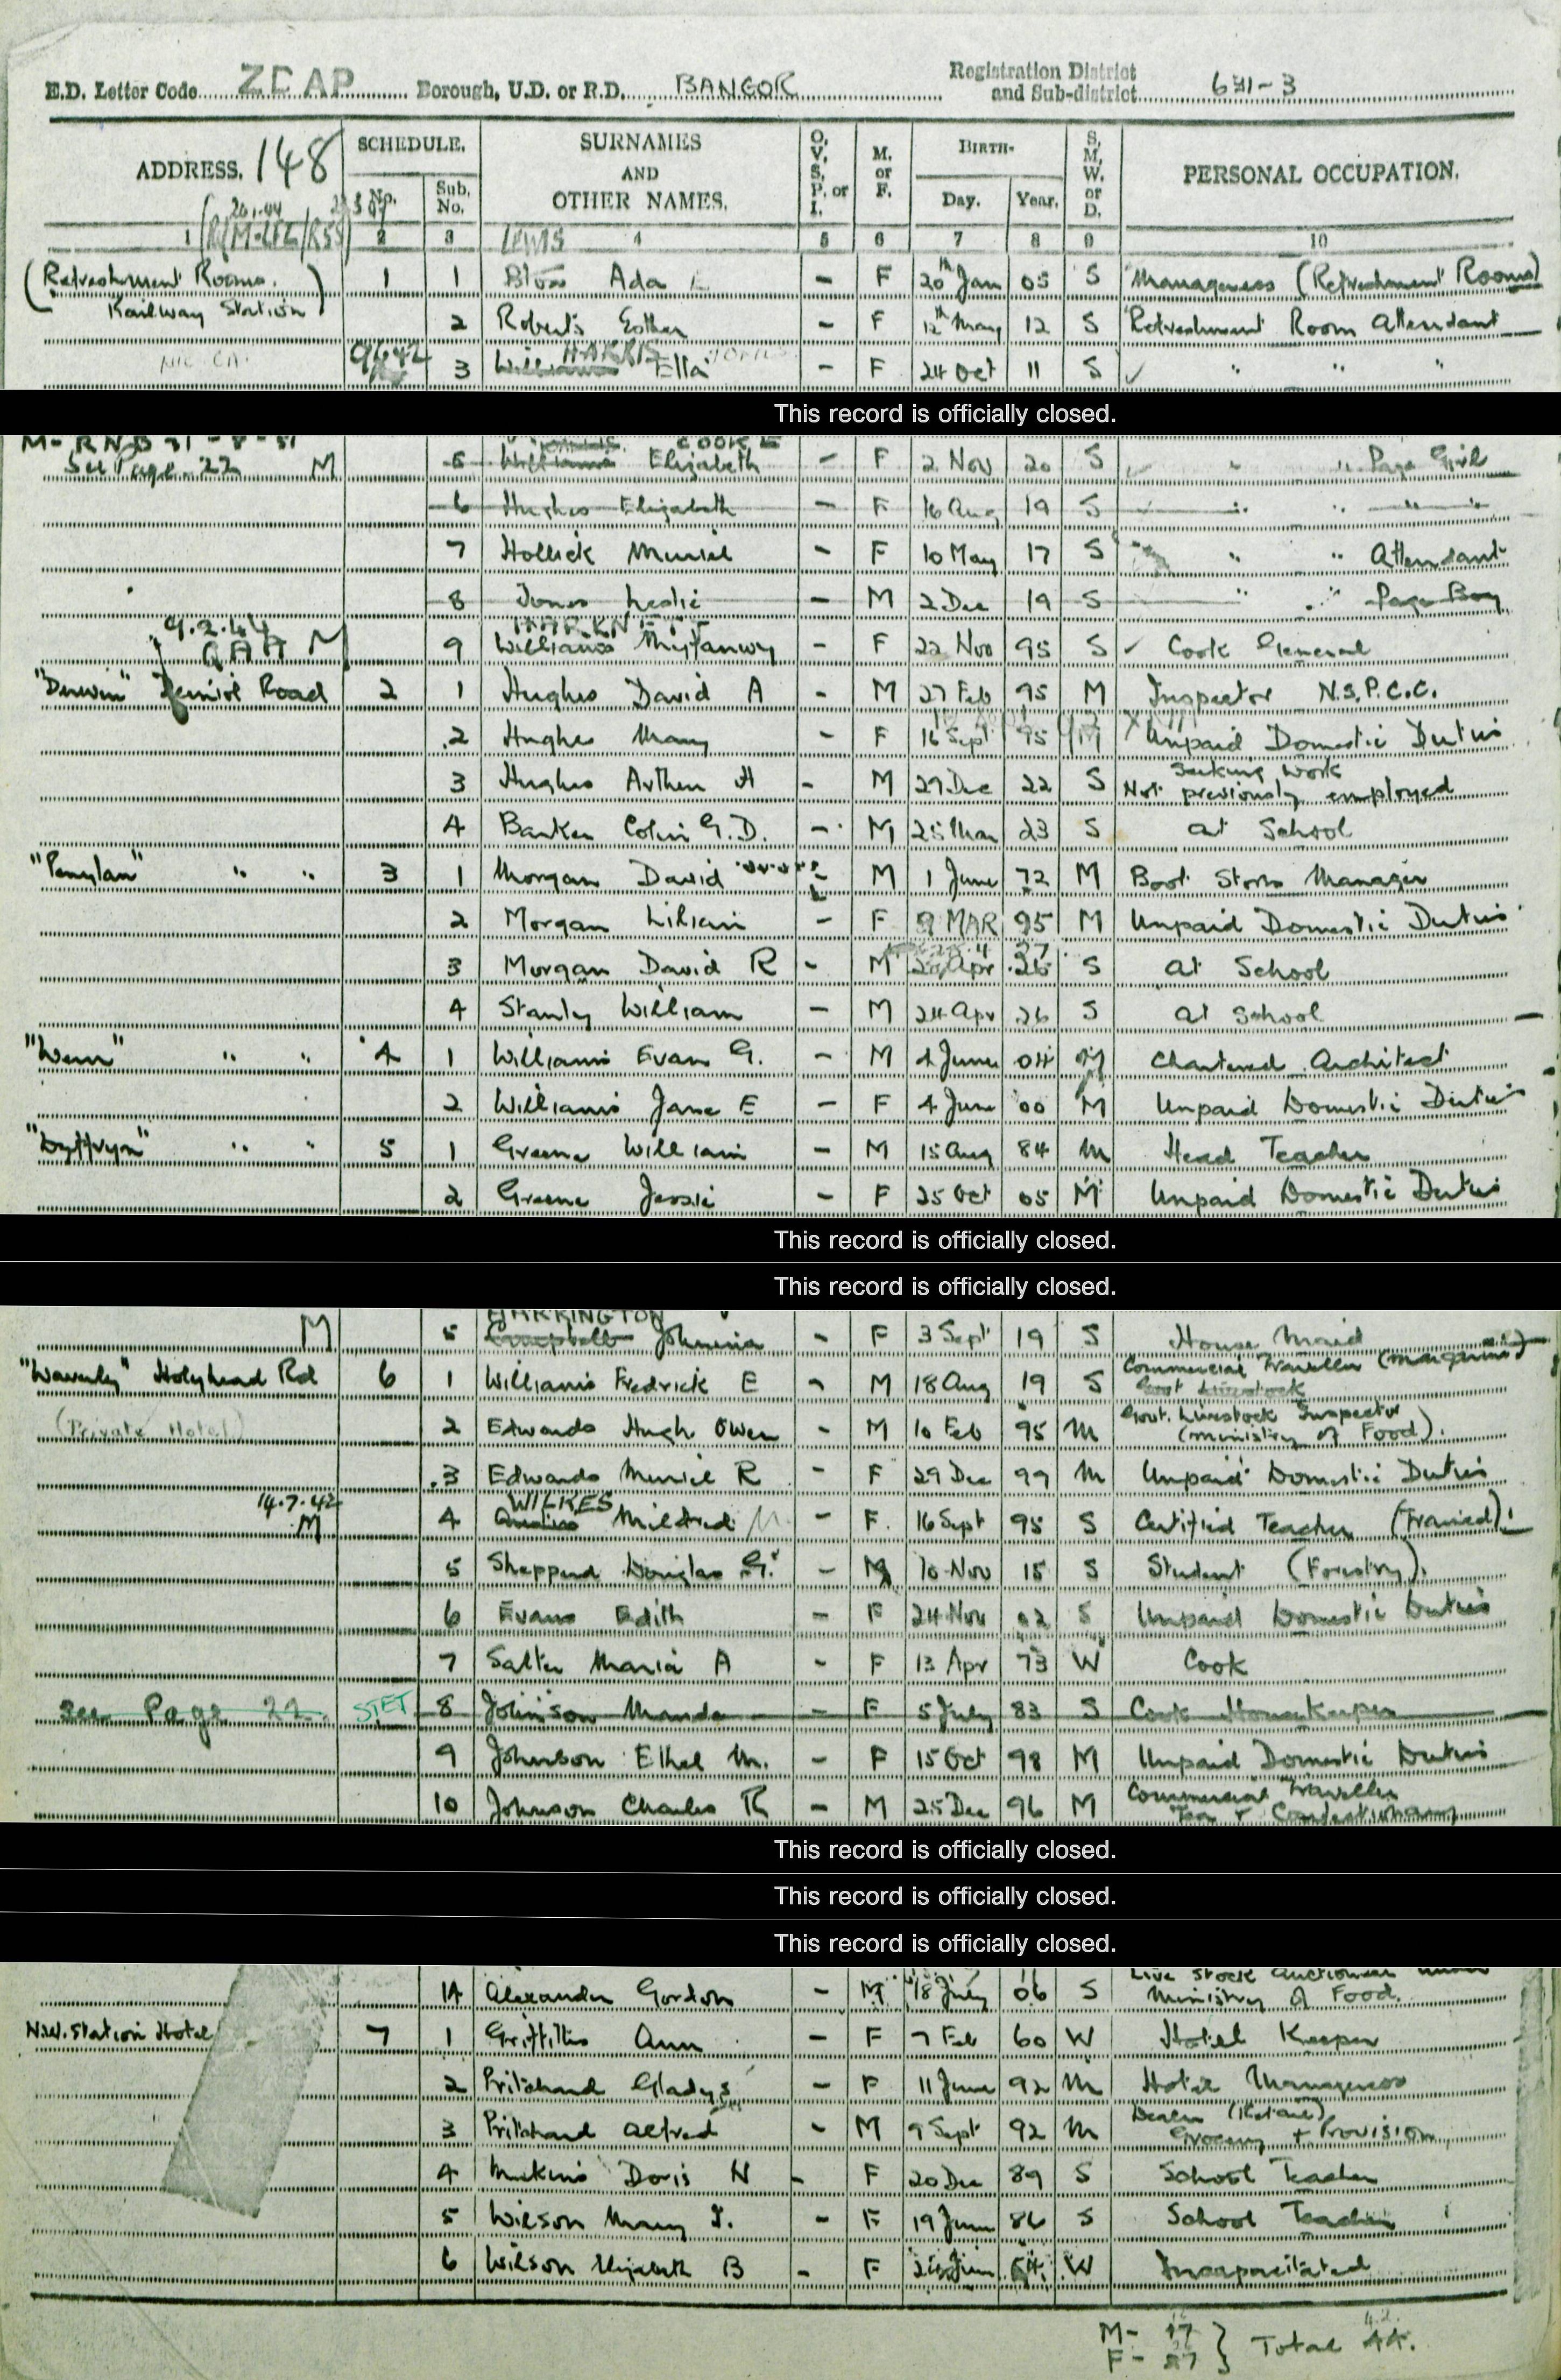 E.D. Letter Code ZCAP Borough, U.D. or R.D. BANGOR Registration District and Sub-district 631-3
ADDRESS. 148 SCHEDULE. No. Sub. No. SURNAMES AND OTHER NAMES. O, V, S, P. or I. M. or F. BIRTH- Day. Year. S, M, W. or D. PERSONAL OCCUPATION.
1 2 3 4 5 6 7 8 9 10
LEWIS
(Refreshment Rooms. Railway Station) 1 1 Ada - F 20th Jan 05 S Manageress (Refreshment Rooms)
2 Roberts Esther - F 12th May 12 S Refreshment Room Attendant
HARRIS
3 Williams Ella - F 24 Oct 11 S " " "
This record is officially closed.
COOKE
See Page 22 M 5 Williams Elizabeth - F 2 Nov 20 S " " Page Girl
6 Hughes Elizabeth - F 16 Aug 19 S " " " "
7 Hollick Muriel - F 10 May 17 S " " Attendant
8 Jones Leslie - M 2 Dec 19 S " " Page Boy
9.2.44 M 9 Williams Myfanwy - F 22 Nov 95 S Cook General
"Derwin" Road 2 1 Hughes David A - M 27 Feb 95 M Inspector N.S.P.C.C.
2 Hughes Mary - F 16 Sept 95 M Unpaid Domestic Duties
3 Hughes Arthur H - M 29 Dec 22 S Seeking Work Not previously employed
4 Colin G.D. - M 25 Mar 23 S At School
"Penylan" " " 3 1 Morgan David - M 1 June 72 M Boot Stores Manager
2 Morgan Lilian - F 9 MAR 95 M Unpaid Domestic Duties
3 Morgan David R - M Apr S At School
4 Stanley William - M 24 Apr 26 S At School
" " 4 1 Williams Evan G. - M 4 June 04 M Chartered Architect
2 Williams Jane E - F 4 June 00 M Unpaid Domestic Duties
"Dyffryn" " " 5 1 Greene William - M 15 Aug 84 M Head Teacher
2 Greene Jessie - F 25 Oct 05 M Unpaid Domestic Duties
This record is officially closed.
This record is officially closed.
M 5 Campbell Johnina - F 3 Sept 19 S House Maid
"Waverley" Holyhead Rd 6 1 Williams Fredrick E - M 18 Aug 19 S Commercial Traveller
(Private Hotel) 2 Edwards Hugh Owen - M 10 Feb 95 M Govt. Livestock Inspector (Ministry of Food).
3 Edwards Muriel R - F 29 Dec 99 M Unpaid Domestic Duties
WILKES
14.7.42 M 4 Mildred M. - F. 16 Sept 95 S Certified Teacher (Trained)
5 Sheppard Douglas G. - M 10 Nov 15 S Student (Forestry).
6 Evans Edith - F 24 Nov 02 S Unpaid Domestic Duties
7 Salter Maria A - F 13 Apr 73 W Cook
See Page 22. STET 8 Johnson Maude - F 5 July 83 S Cook Housekeeper
9 Johnson Ethel M. - F 15 Oct 98 M Unpaid Domestic Duties
10 Johnson Charles R - M 25 Dec 96 M Commercial Traveller Tea & Confectionary
This record is officially closed.
This record is officially closed.
This record is officially closed.
14 Alexander Gordon - M 18 July 06 S Live Stock Auctioneer under Ministry of Food.
N.W. Station Hotel 7 1 Griffiths Ann - F 7 Feb 60 W Hotel Keeper
2 Pritchard Gladys - F 11 June 92 M Hotel Manageress
3 Pritchard Alfred - M 9 Sept 92 M Dealer (Retail) Grocery + Provision
4 Doris N - F 20 Dec 89 S School Teacher
5 Wilson Mary J. - F 19 June 86 S School Teacher
6 Wilson Elizabeth B - F W Incapacitated
M- 17
F- 27 } Total 44.